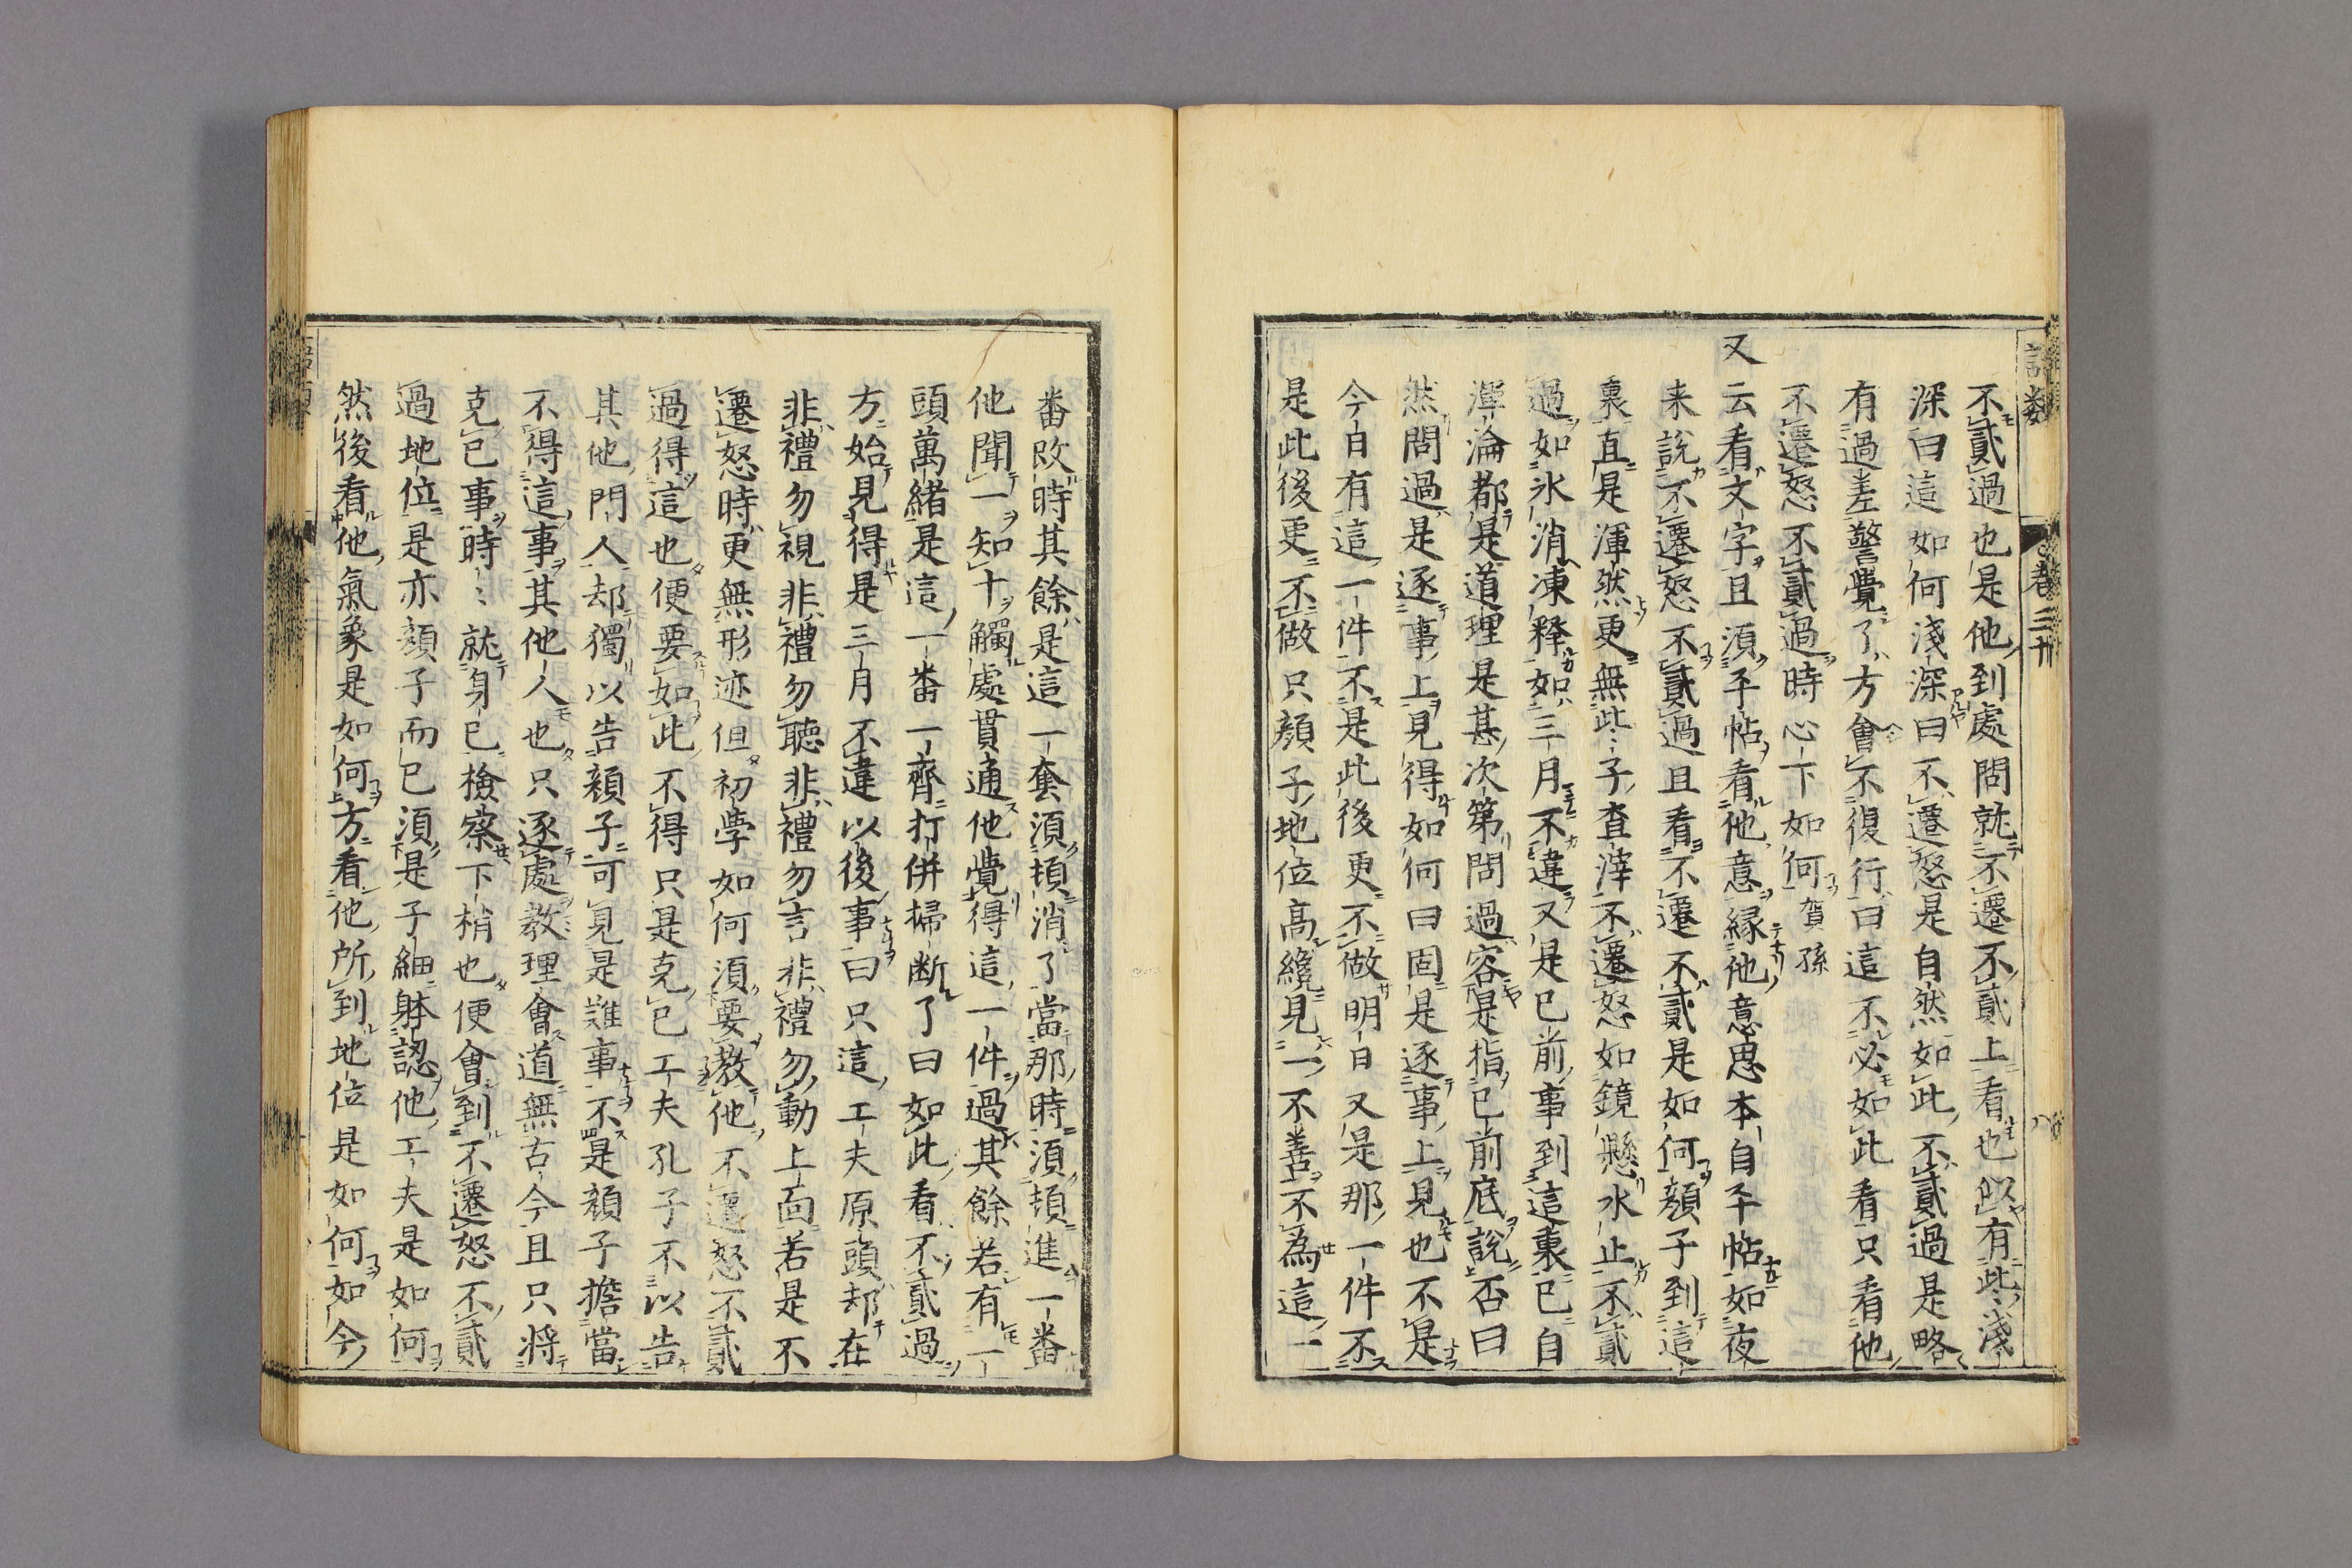 不貳過也是他到處問就不遷不貳上看也似有此淺
深曰這如何淺深曰不遷怒是自然如此不貳過是略
有過差警覺了方會不復行曰這不必如此看只看他
不遷怒不貳過時心下如何賀孫
又云看文字且須平帖看他意緣他意思本自平帖如夜
来說不遷怒不貳過且看不遷不貳是如何顏子到這
裏直是渾然更無些子查滓不遷怒如鏡懸水止不貳
過如氷消凍釋如三月不違又是已前事到這裏已自
渾淪都是道理是甚次第問過容是指已前底說否曰
然問過是逐事上見得如何曰固是逐事上見也不是
今日有這一件不是此後更不做明日又是那一件不
是此後更不做只顏子地位高纔見一不善不為這一
番改時其餘是這一套須頓消了當那時須頓進一番
他聞一知十觸處貫通他覺得這一件過其餘若有一
頭萬緒是這一番一齊打併掃断了曰如此看不貳過
方始見得是三月不違以後事曰只這工夫原頭却在
非禮勿視非禮勿聽非禮勿言非禮勿動上面若是不
遷怒時更無形迹但初學如何須要教他不遷怒不貳
過得這也便要如此不得只是克已工夫孔子不以告
其他門人却獨以告顏子可見是難事不是顏子擔當
不得這事其他人也只逐處教理會道無古今且只将
克已事時〻就身已檢察下梢也便會到不遷怒不貳
過地位是亦顏子而已須是子細躰認他工夫是如何
然後看他氣象是如何方看他所到地位是如何如今
語類
卷三十
八